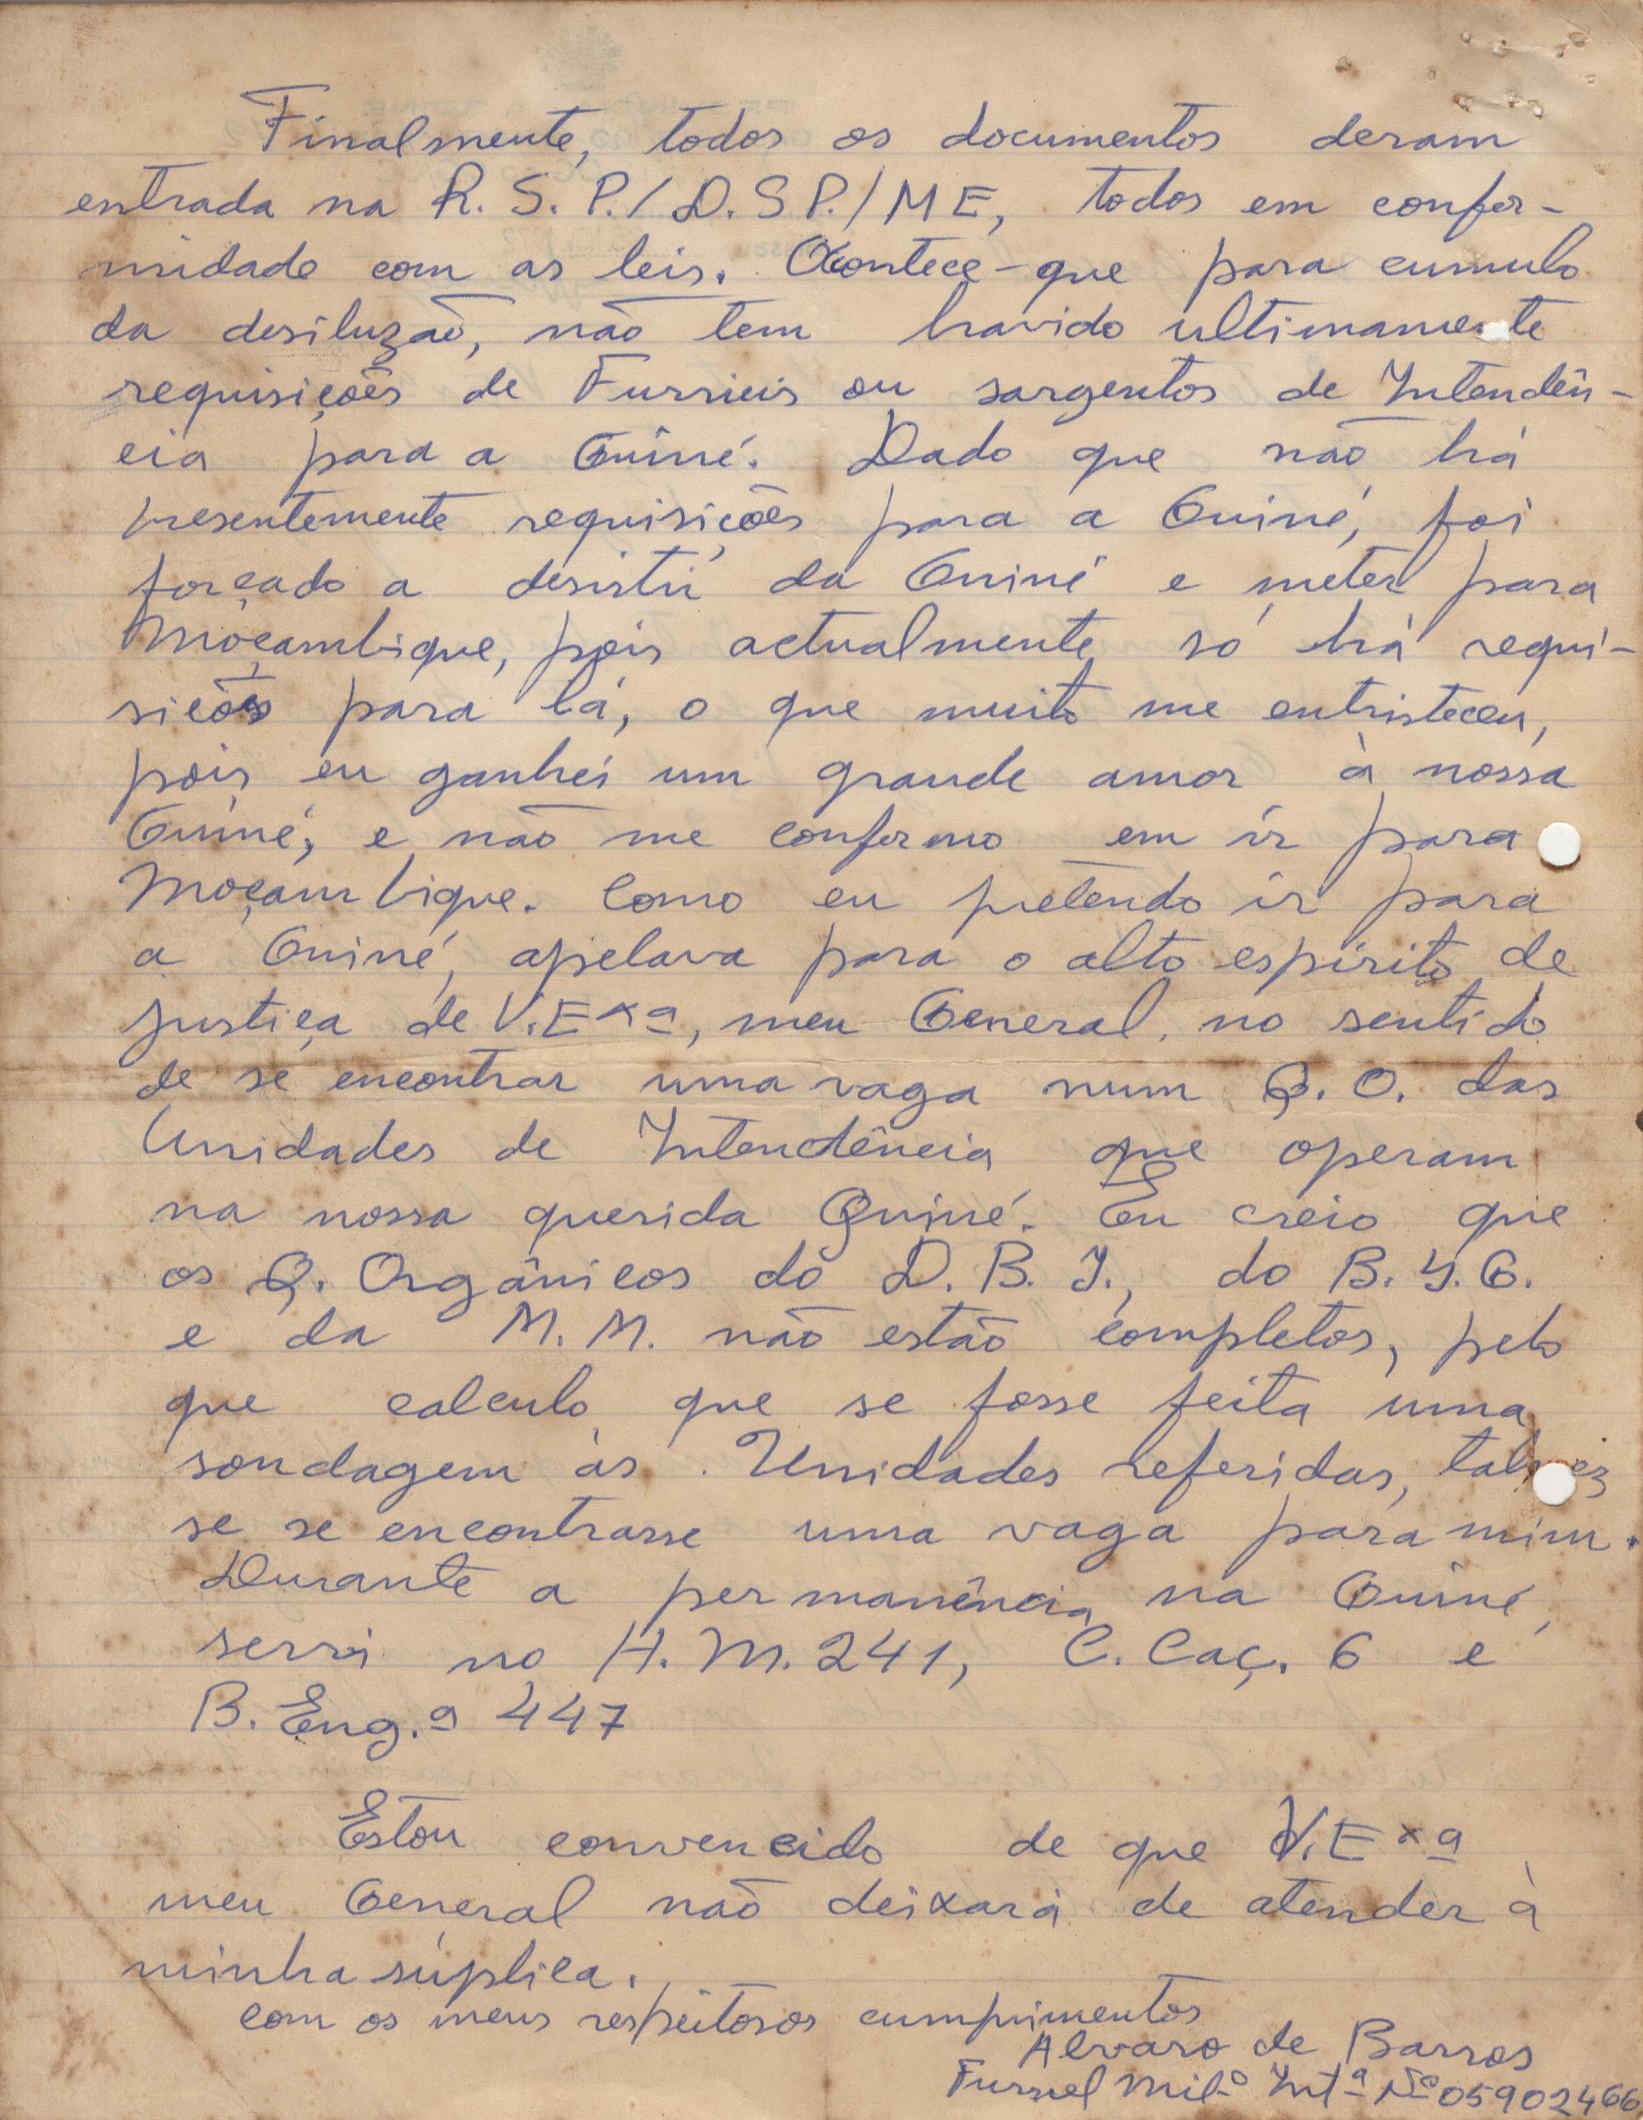 Finalmente, todos os documentos deram
entrada na R. S. P. / D. S P. / M E, todos em confor-
midade com as leis. Acontece - que para cumulo
da desiluzão, não tem havido ultimamente
requisições de Furrieis ou sargentos de Intendên-
cia para a Guiné. Dado que não há
presentemente requisições para a Guiné, foi
forçado a desistir da Guiné e meter para
Moçambique, pois actualmente só há requi-
sicões para lá, o que muito me entristeceu,
pois eu ganhei um grande amor à nossa
Guiné, e não me conformo em ir para
Moçambique. Como eu pretendo ir para
a Guiné, apelava para o alto espírito de
justiça de V. Exª, meu General, no sentido
de se encontrar uma vaga num Q. O. das
Unidades de Intendência que operam
na nossa querida Guiné. Eu creio que
os Q. Orgânicos do D. B. I., do B. I. G.
e da M. M. não estão completos, pelo
que calculo que se fosse feita uma
sondagem às Unidades referidas, talvez
se se encontrasse uma vaga para mim.
Durante a permanência na Guiné,
servi no H. M. 241, C. Caç. 6 e
B. Eng.ª 447
Estou convencido de que V. Exª
meu General não deixará de atender à
minha súplica.
com os meus respeitosos cumprimentos
Alvaro de Barros
Furriel Milº Intª Nº 05902466